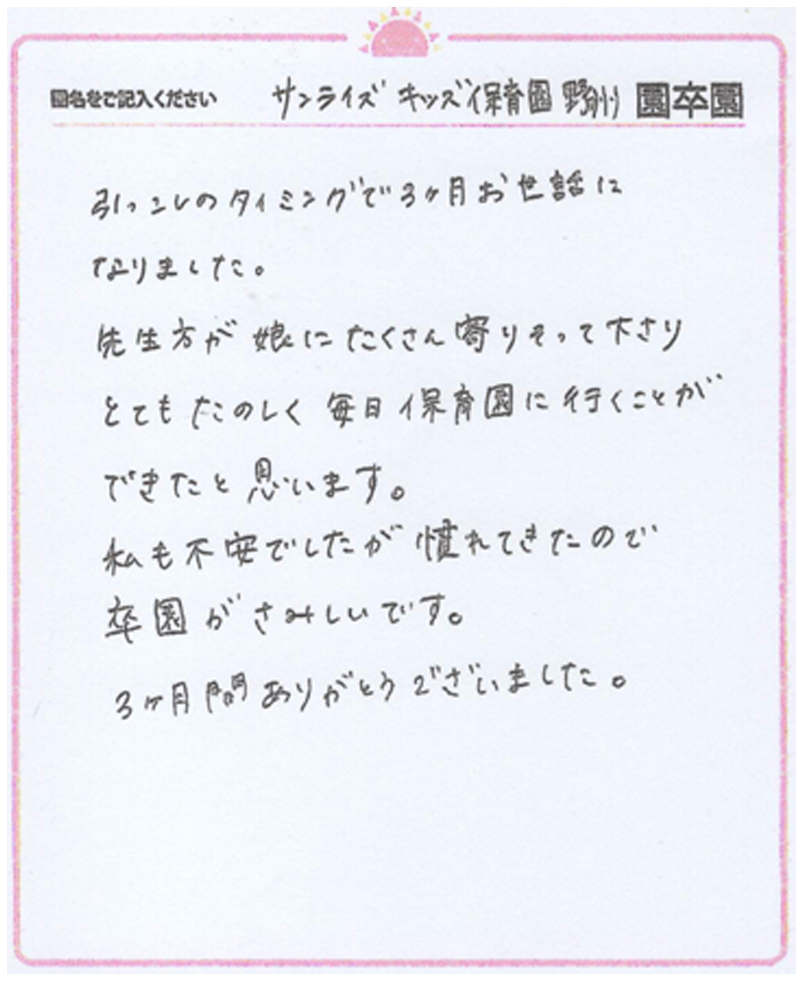 園名をご記入ください サンライズ キッズ保育園 野洲 園卒園
引っこしのタイミングで3ヶ月お世話に
なりました。
先生方が娘にたくさん寄りそって下さり
とてもたのしく毎日保育園に行くことが
できたと思います。
私も不安でしたが慣れてきたので
卒園がさみしいです。
3ヶ月間ありがとうございました。